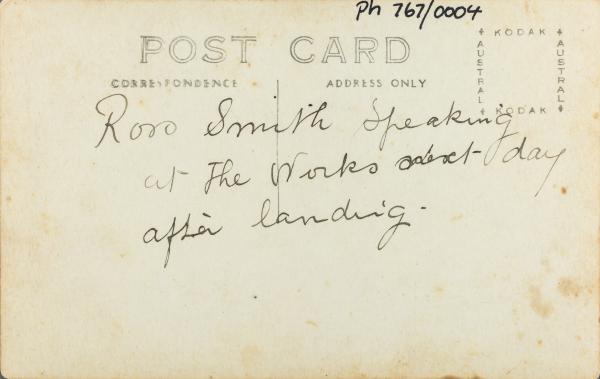 Ph 767/0004
POST CARD
KODAK
AUSTRAL
AUSTRAL
KODAK
CORRESPONDENCE
ADDRESS ONLY
Ross Smith speaking
at the Works next day
after landing.